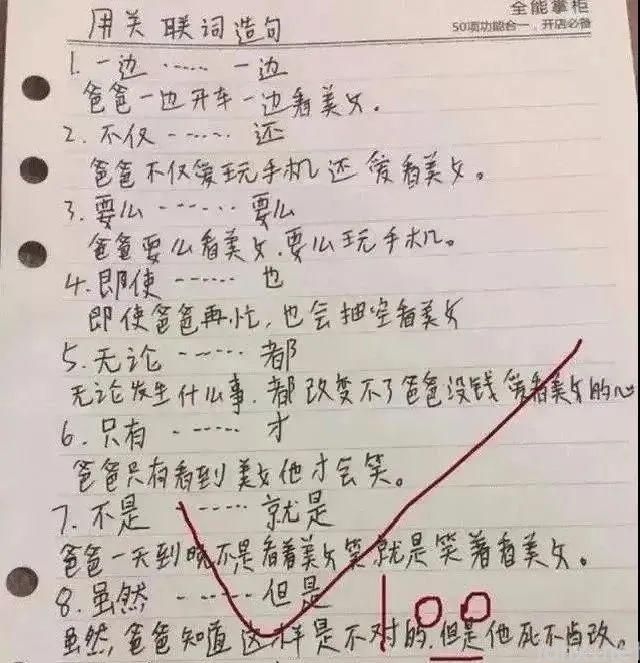 全能掌柜
50项功能合一，开店必备
用关联词造句
1. 一边 …… 一边
爸爸一边开车一边看美女。
2. 不仅 …… 还
爸爸不仅爱玩手机还爱看美女。
3. 要么 …… 要么
爸爸要么看美女.要么玩手机。
4. 即使 …… 也
即使爸爸再忙，也会抽空看美女
5. 无论 …… 都
无论发生什么事.都改变不了爸爸没钱爱看美女的心
6. 只有 …… 才
爸爸只有看到美女他才会笑。
7. 不是 …… 就是
爸爸一天到晚不是看着美女笑就是笑着看美女。
8. 虽然 …… 但是
虽然，爸爸知道这样是不对的.但是他死不肯改。
100